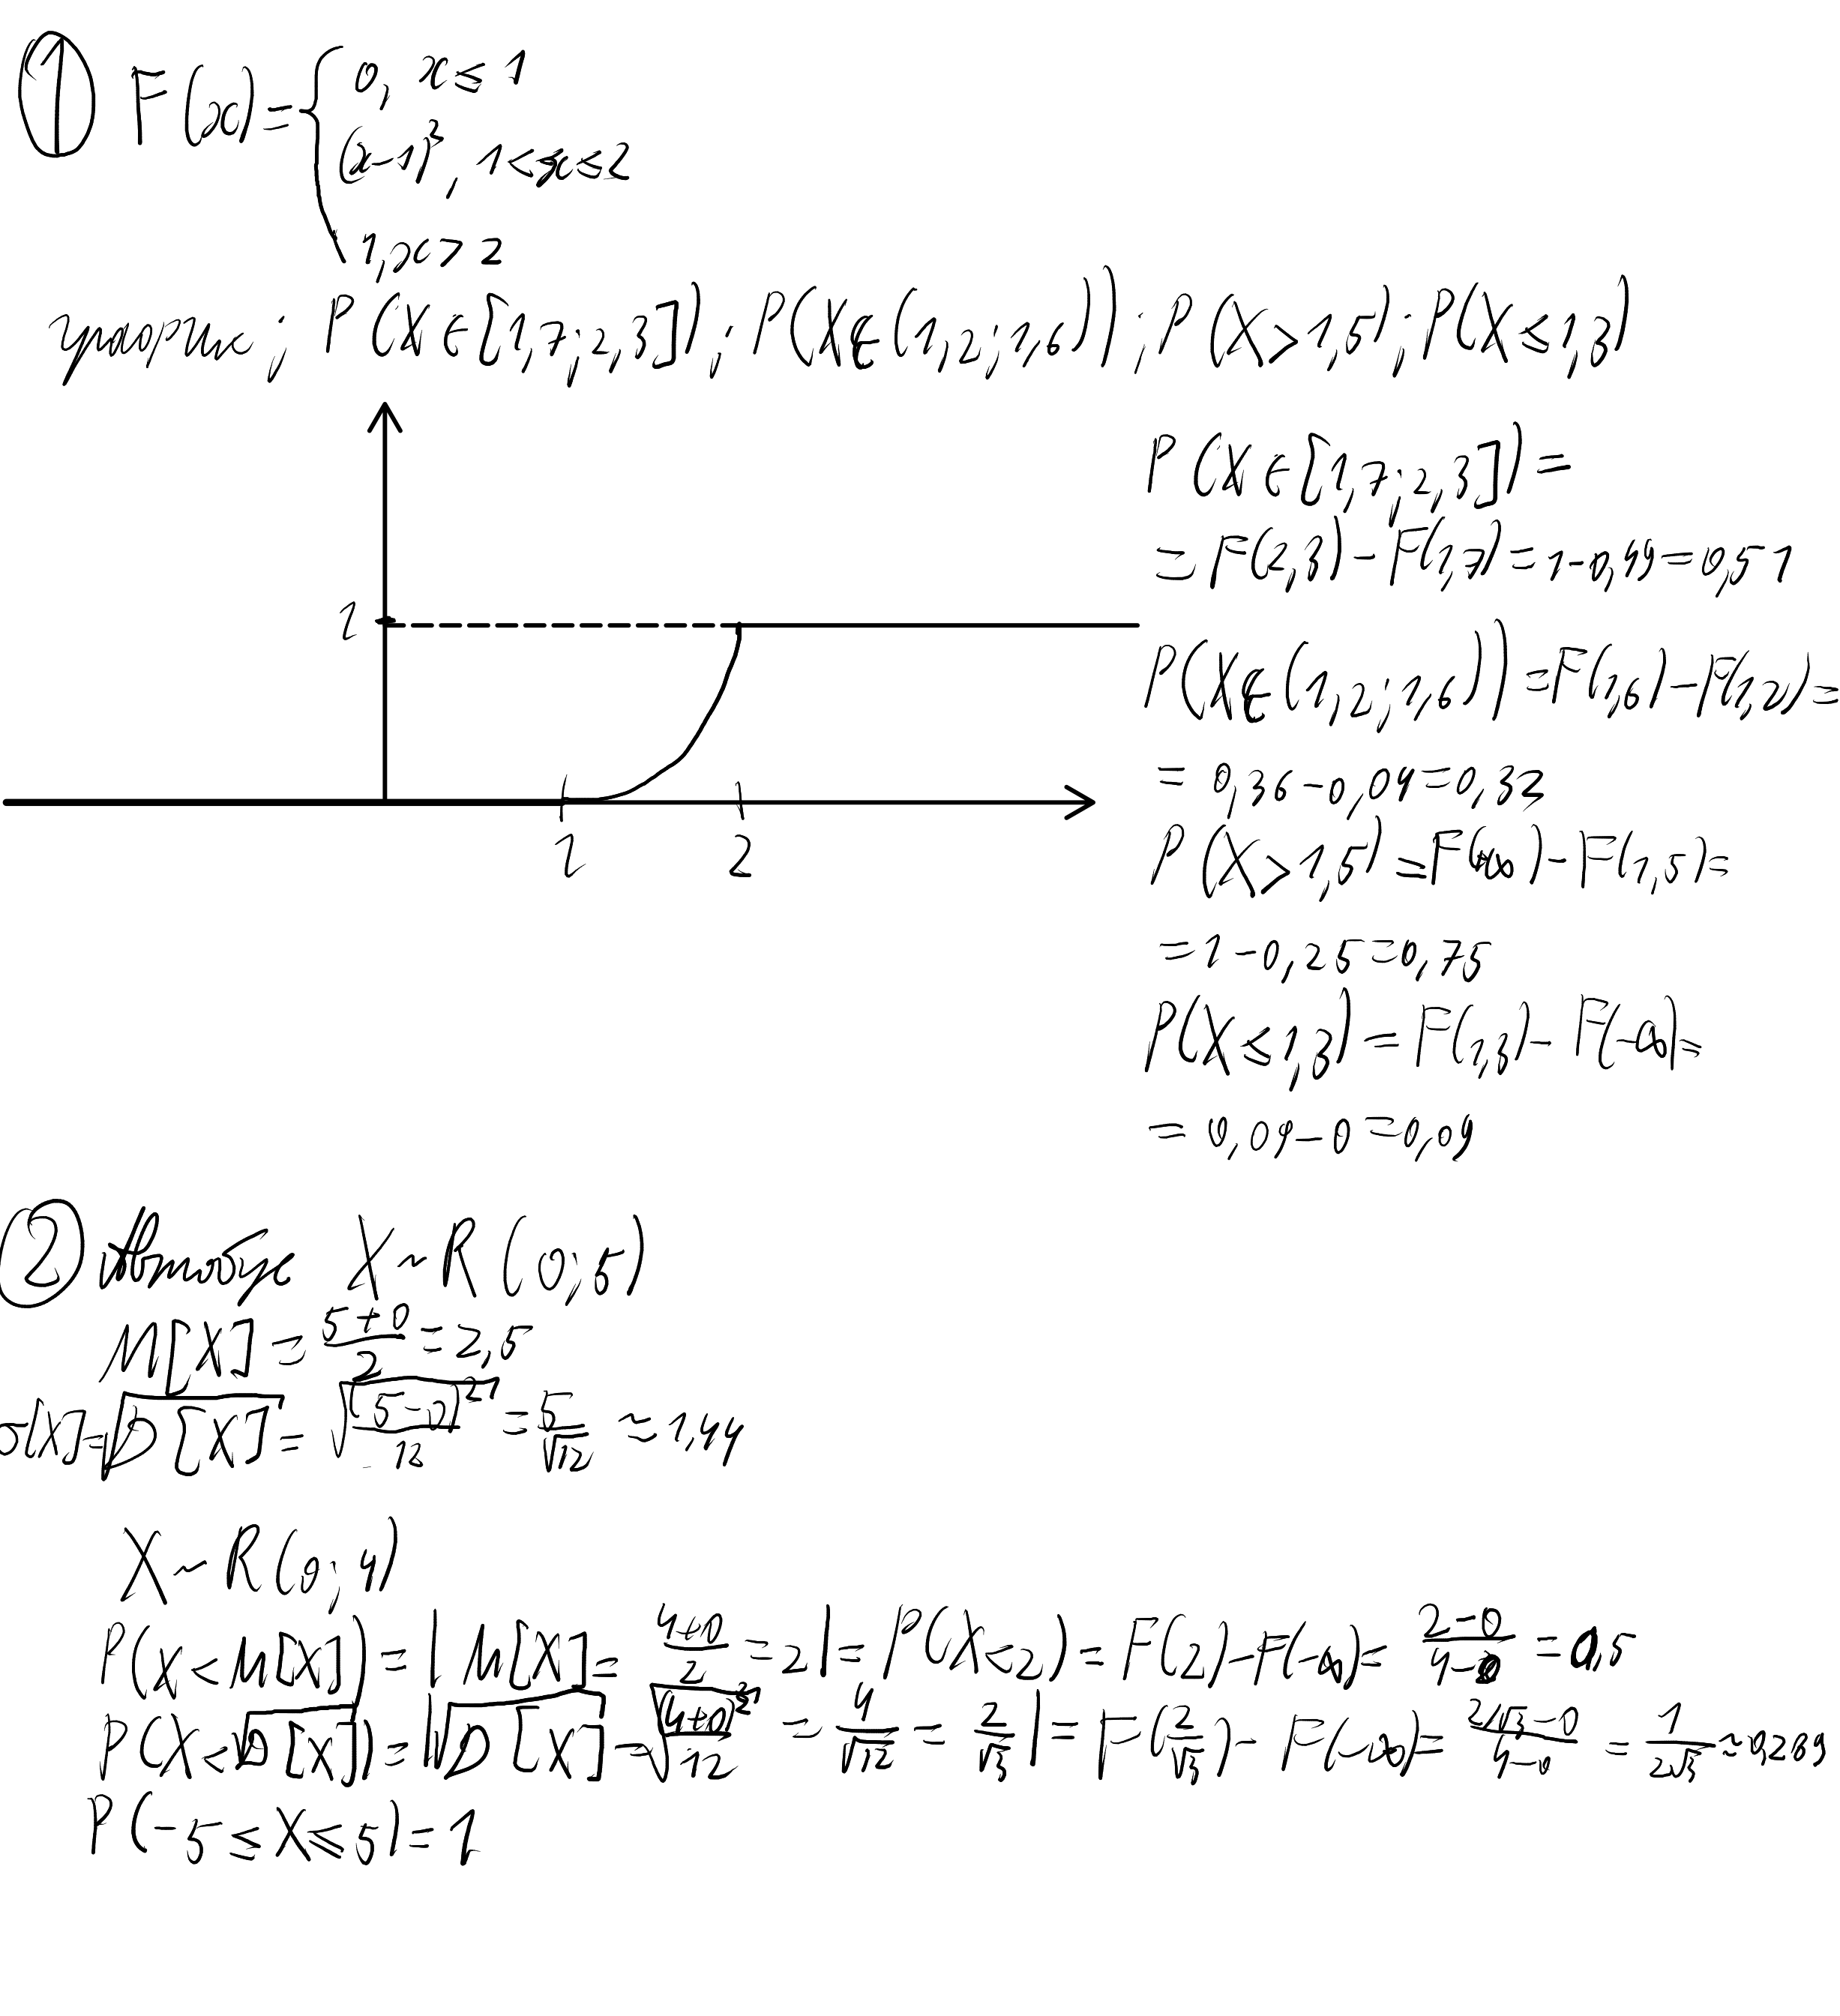 ① F(x) = { 0, x ≤ 1
(x-1)², 1 < x ≤ 2
1, x > 2
график; P(X ∈ [1,7; 2,3]); P(X ∈ (1,2; 1,6)); P(X > 1,5); P(X ≤ 1,3)
1
1 2
P(X ∈ [1,7; 2,3]) =
= F(2,3) - F(1,7) = 1 - 0,49 = 0,51
P(X ∈ (1,2; 1,6)) = F(1,6) - F(1,2) =
= 0,36 - 0,04 = 0,32
P(X > 1,5) = F(+∞) - F(1,5) =
= 1 - 0,25 = 0,75
P(X ≤ 1,3) = F(1,3) - F(-∞) =
= 0,09 - 0 = 0,09
② Автобус X ~ R(0; 5)
M[X] = (5+0)/2 = 2,5
σ[X] = √D[X] = √((5-0)²/12) = 5/√12 ≈ 1,44
X ~ R(0; 4)
P(X < M[X]) = | M[X] = (4+0)/2 = 2 | = P(X < 2) = F(2) - F(-∞) = (2-0)/(4-0) = 0,5
P(X < √D[X]) = | √D[X] = √((4+0)²/12) = 4/√12 = 2/√3 | = F(2/√3) - F(-∞) = (2/√3 - 0)/(4-0) = 1/(2√3) ≈ 0,289
P(-5 ≤ X ≤ 5) = 1